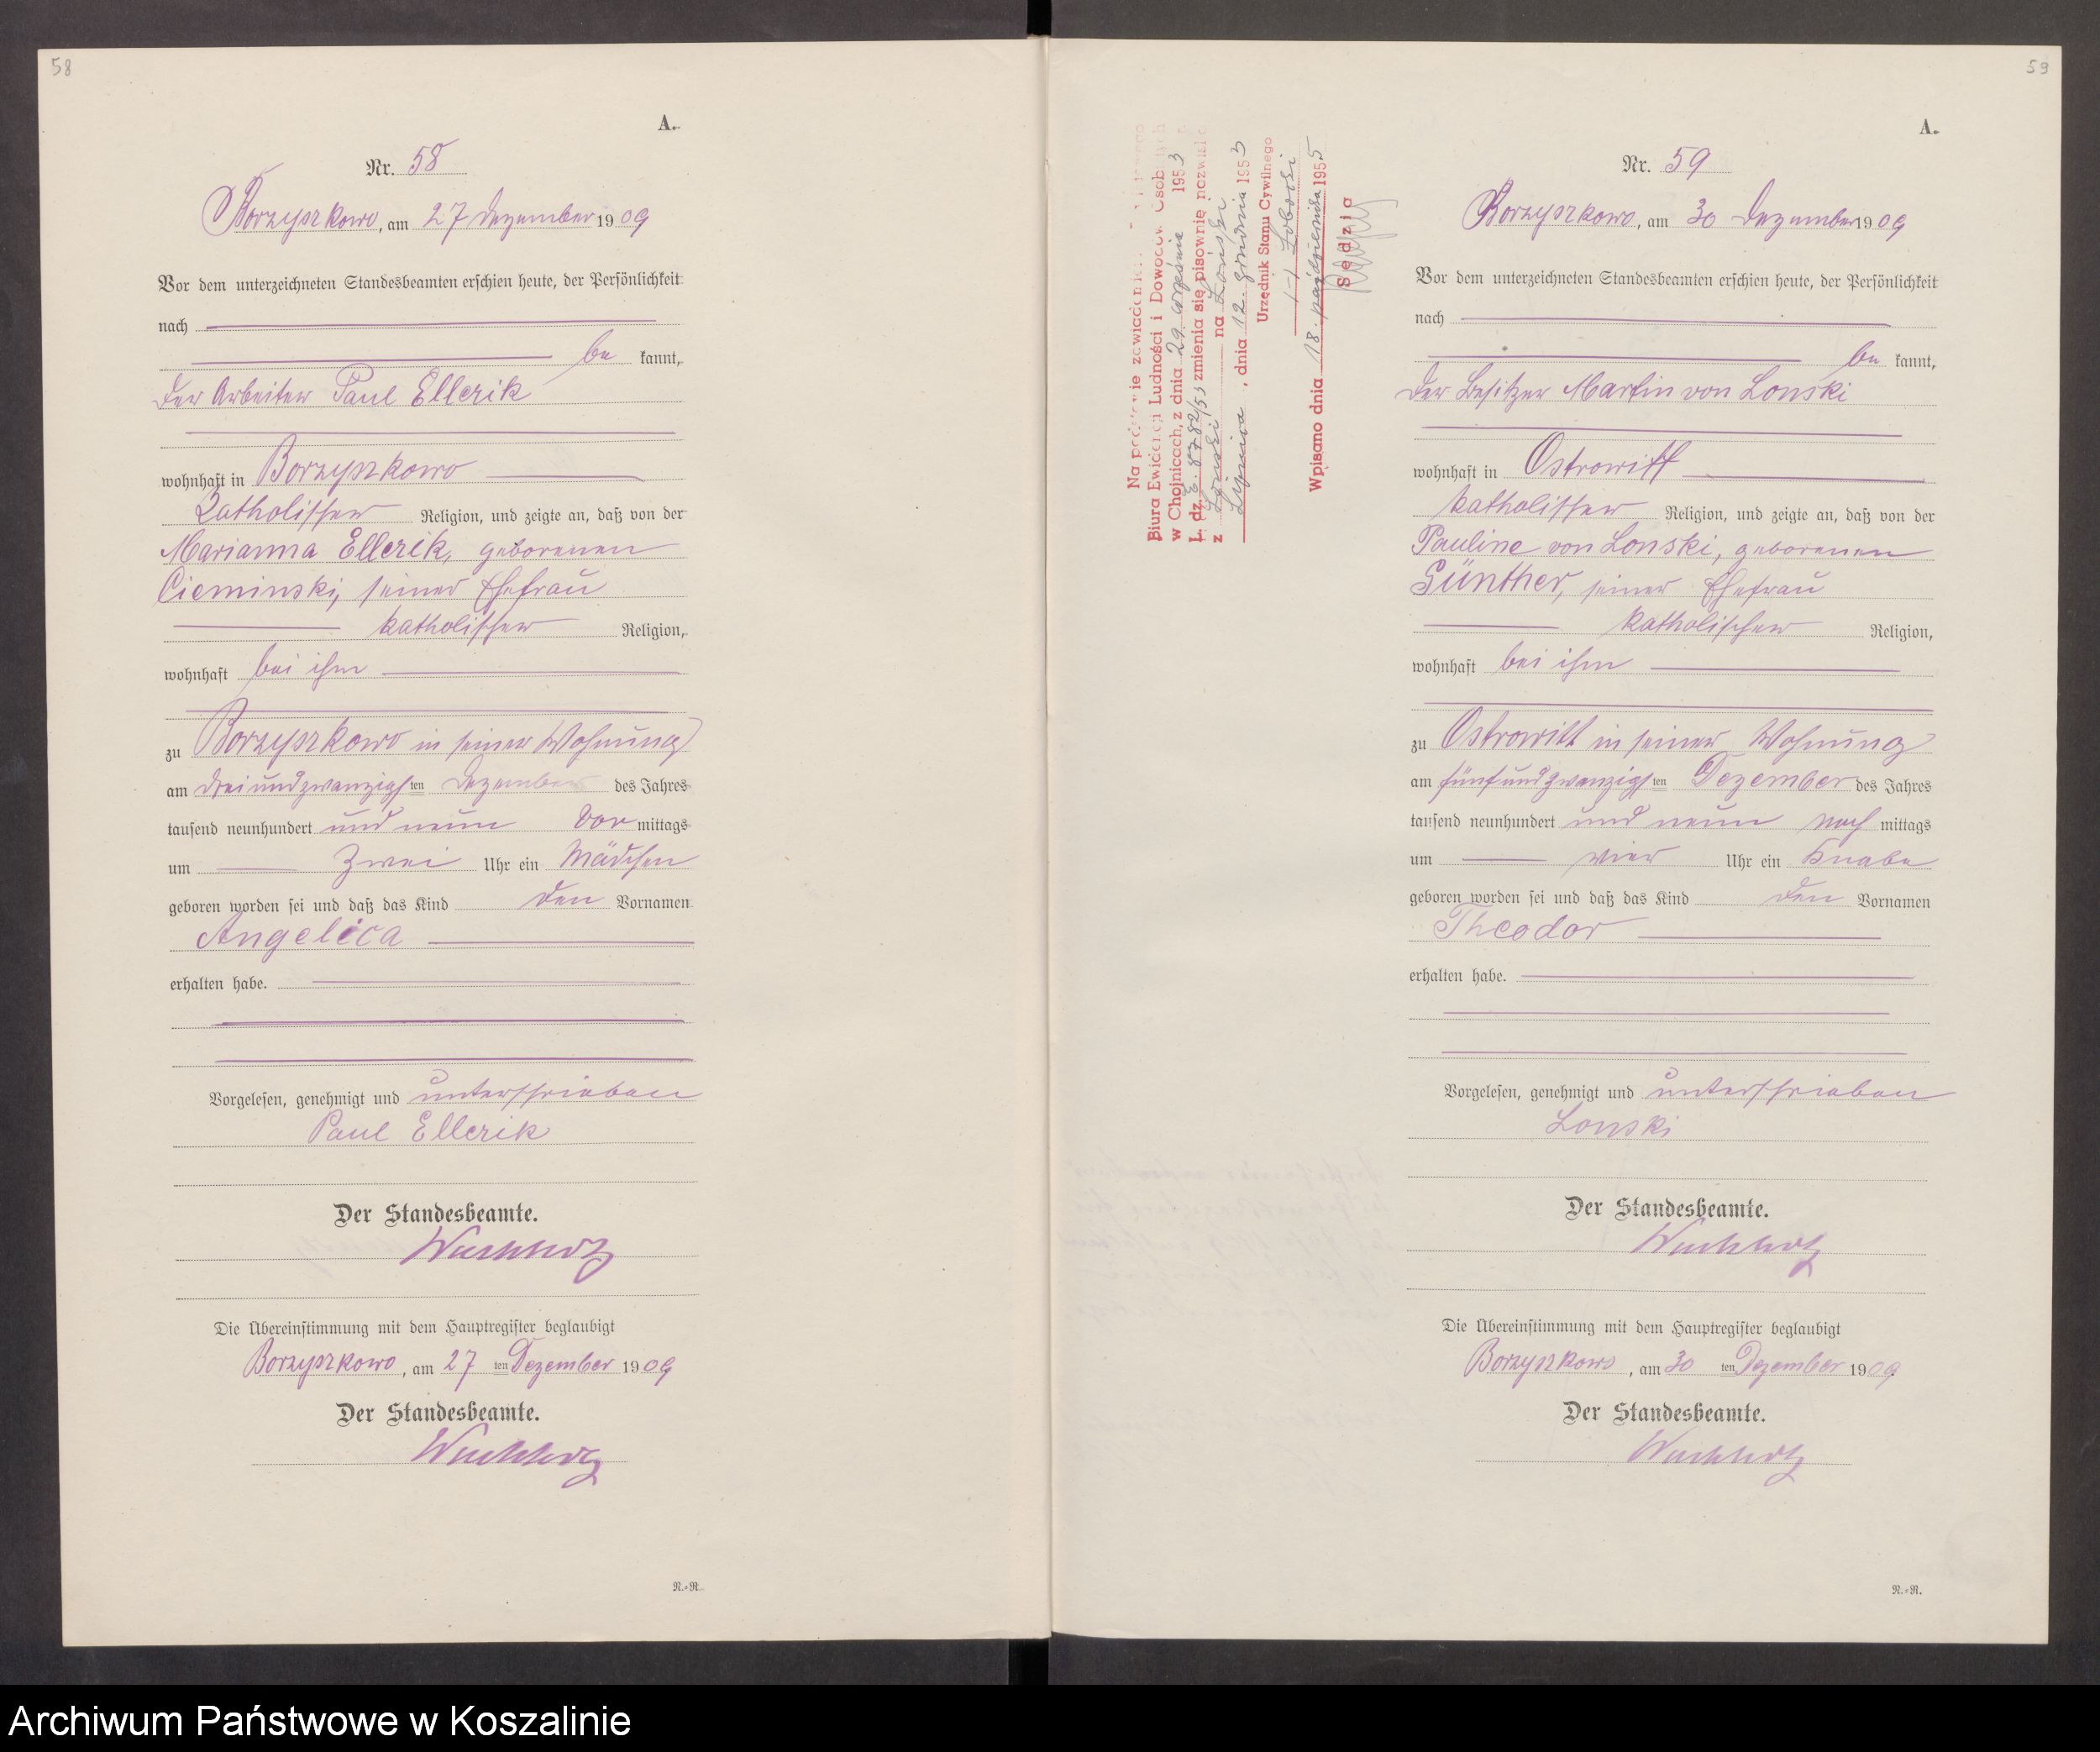 58
A.
Nr. 58
Borzyszkowo, am 27 Dezember 1909
Vor dem unterzeichneten Standesbeamten erschien heute, der Persönlichkeit
nach
be kannt,
der Arbeiter Paul Ellerik
wohnhaft in Borzyszkowo
katholischer Religion, und zeigte an, daß von der
Marianna Ellerik, geborenen
Cieminski, seiner Ehefrau
katholischer Religion,
wohnhaft bei ihm
zu Borzyszkowo in seiner Wohnung
am dreiundzwanzigsten Dezember des Jahres
tausend neunhundert und neun Vor mittags
um zwei Uhr ein Mädchen
geboren worden sei und daß das Kind den Vornamen
Angelica
erhalten habe.
Vorgelesen, genehmigt und unterschrieben
Paul Ellerik
Der Standesbeamte.
Die Übereinstimmung mit dem Hauptregister beglaubigt
Borzyszkowo, am 27 ten Dezember 1909
Der Standesbeamte.
N.=R.
59
A.
Na podstawie
Biura Ewidencji Ludności i Dowodów Osobistych
w Chojnicach, z dnia 29 września 1953
L. dz. E. 8782/53 zmienia się pisownię nazwiska
z Lonski na Łoński
Lipnica, dnia 12. grudnia 1953
Urzędnik Stanu Cywilnego
Wpisano dnia 18. października 1955
Sędzia
Nr. 59
Borzyszkowo, am 30 Dezember 1909
Vor dem unterzeichneten Standesbeamten erschien heute, der Persönlichkeit
nach
be kannt,
der Besitzer Martin von Lonski
wohnhaft in Ostrowitt
katholischer Religion, und zeigte an, daß von der
Pauline von Lonski, geborenen
Günther, seiner Ehefrau
katholischer Religion,
wohnhaft bei ihm
zu Ostrowitt in seiner Wohnung
am fünfundzwanzigsten Dezember des Jahres
tausend neunhundert und neun nach mittags
um vier Uhr ein Knabe
geboren worden sei und daß das Kind den Vornamen
Theodor
erhalten habe.
Vorgelesen, genehmigt und unterschrieben
Lonski
Der Standesbeamte.
Die Übereinstimmung mit dem Hauptregister beglaubigt
Borzyszkowo, am 30 ten Dezember 1909
Der Standesbeamte.
N.=R.
Archiwum Państwowe w Koszalinie